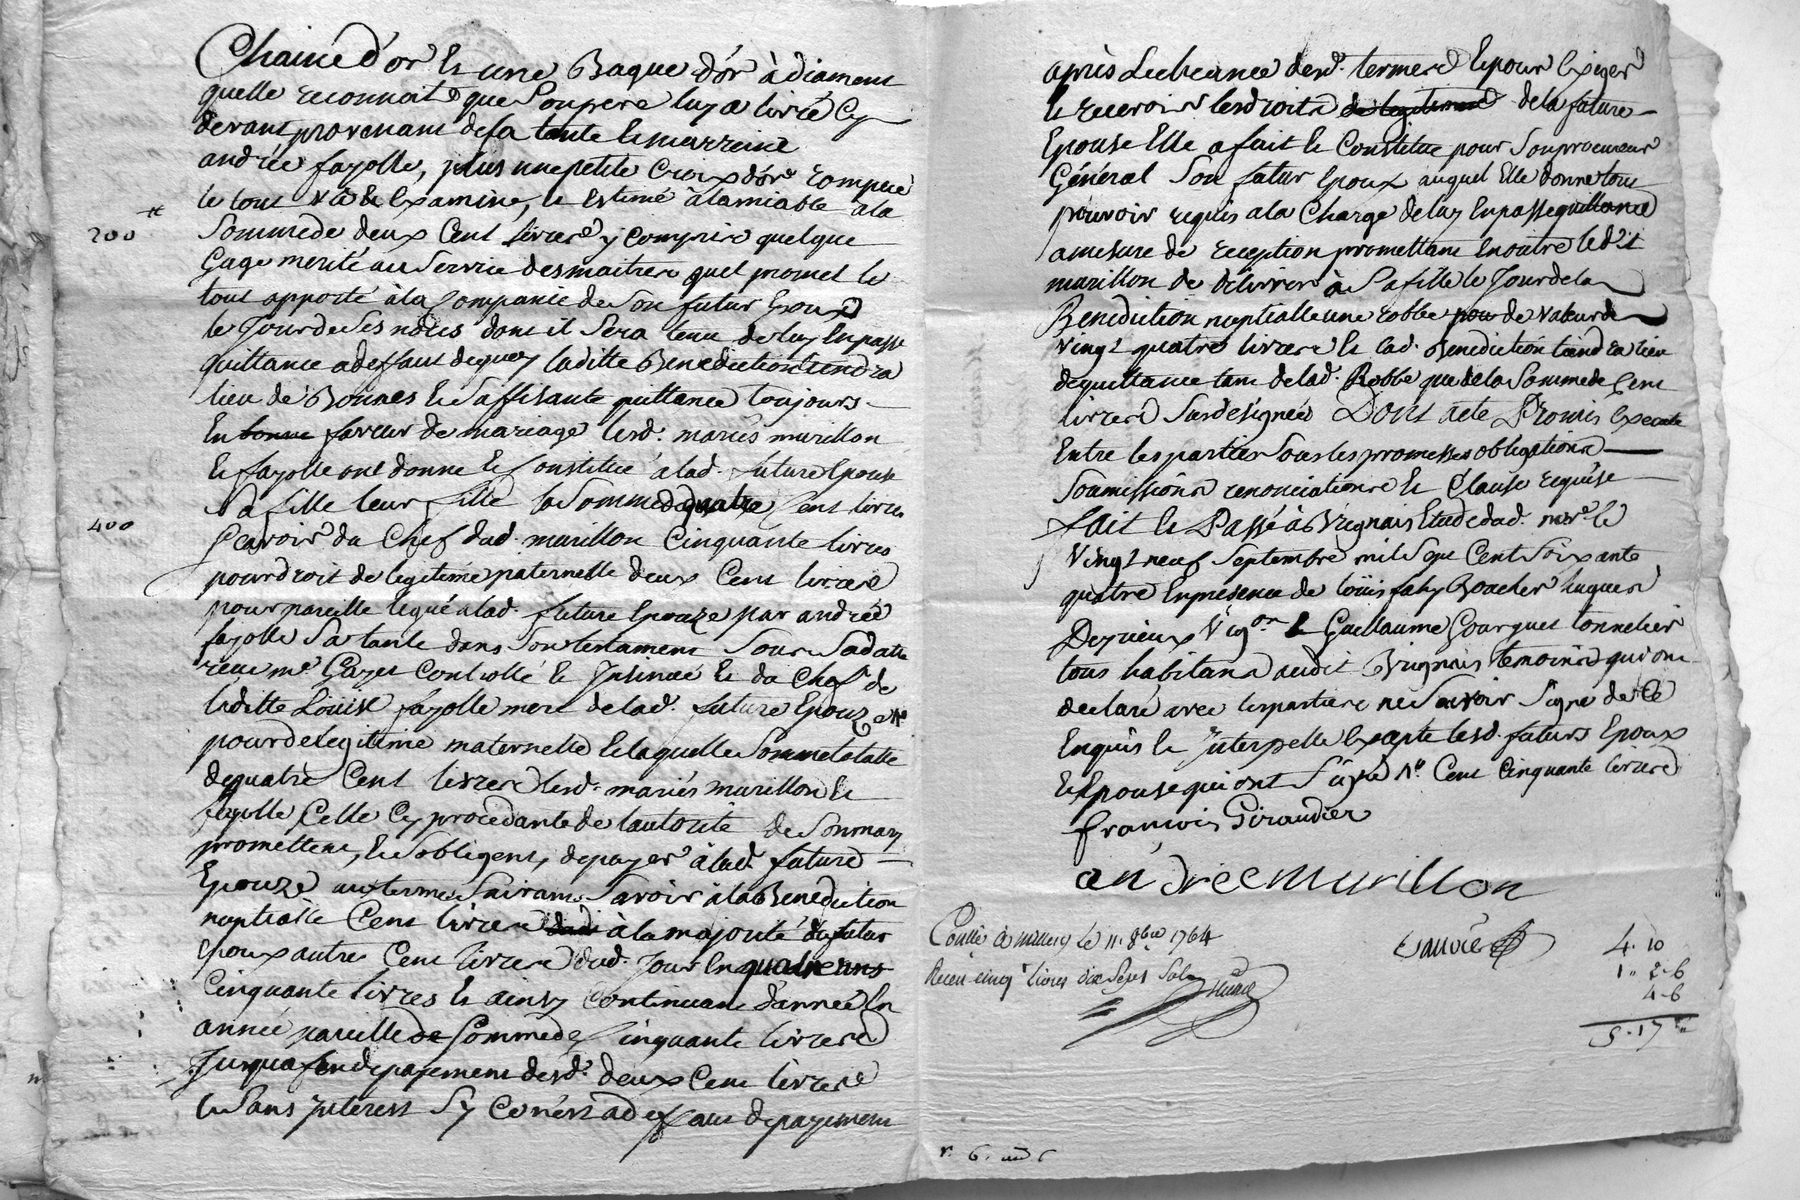 Chaine d'or & une Bague d'or à diament
quelle reconnoit que Son pere luy a livré Cy
devant provenant de sa tante & marreine
andrée fayolle, plus une petite Croix d'or rompue
le tout vû & Examiné, & Estimé à lamiable a la
200 ₶
Somme de deux Cent livres y Compris quelque
Gage merité au Service des maitres quel promet le
tout apporté à la Compagnie de Son futur Epoux
le Jour de Ses nôces dont il Sera tenu de luy En passé
quittance a deffaut de quoy laditte Benediction tiendra
lieu de Bonnes & Suffisante quittance toujours
En faveur de mariage lesd. mariés murillon
& fayolle ont donné & Constitué à lad. future Epouse
leur fille la Somme de quatre Cent livres
400
Scavoir du Chef dud. murillon Cinquante livres
pour droit de legitime paternelle deux Cent livres
pour pareille legué a lad. future Epouze par andrée
fayolle Sa tante dans Son testament Sous Sa datte
receu me Controllé & Insinué & du Chef de
laditte Louise fayolle mere de lad. future Epouze
pour de legitime maternelle & laquelle Somme totalle
de quatre Cent livres lesd. mariés murillon &
fayolle Celle Cy procedante de lautorité de Son mary
promettent, & Sobligent, de payer à lad. future
Epouze aux termes Suivants Savoir à la Benediction
nuptialle Cent livres à la majorité du futur
Epoux autres Cent livres dud. Jour En quatre ans
Cinquante livres & ainsy Continuant d'année En
année pareille de Somme de Cinquante livres
Jusqua fin de payement desd. deux Cent livres
& Sans Interest Sy Ce n'est a deffaut de payement
après Lecheance desd. termes & pour Exiger
& recevoir lesdroits de legitime de la future
Epouse Elle a fait & Constitué pour Son procureur
Général Son futur Epoux auquel Elle donne tout
pouvoir requis a la Charge de luy En passe quittance
a mesure de reception promettant En outre ledit
murillon de délivrer à Sa fille le Jour de la
Benediction nuptialle une robbe de valeur de
vingt quatre livres & lad. Benediction tiendra lieu
de quittance tant de lad. Robbe que de la Somme de Cent
livres Susdesignée Dont acte Promis Executé
Entre les parties Sous les promesses obligations
Soumissions renonciations & Clause requise
fait & Passé à Brignais Etude dud. nore le
Vingt neuf Septembre mil Sept Cent Soixante
quatre En presence de Boucher hugues
Deyrieux Vigon & Guillaume Gourguet tonnelier
tous habitans audit Brignais temoins qui ont
declaré avec les parties ne Savoir Signé de Ce
Enquis & Interpellé Excepté lesd. futurs Epoux
& Epouse qui ont Signé Cent Cinquante livres
francois Giraudier
andree murillon
Conlle à le 11. 8bre 1764
Receu cinq livres dix Sept Sols
4. 10
1. 2-6
4-6
5. 17